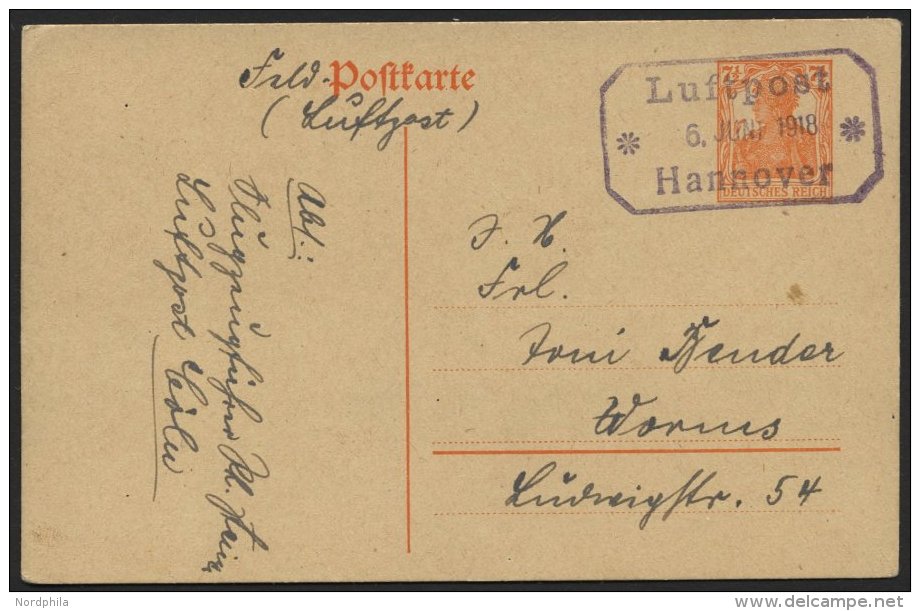 Feld-Postkarte
(Luftpost)
Luftpost
6. JUNI 1918
Hannover
7½ 7½
DEUTSCHES REICH
Abs.:
Flugzeugführer
Luftpost Cöln
J. H.
Frl.
Toni Bender
Worms
Ludwigstr. 54
Nordphila
delcampe.net